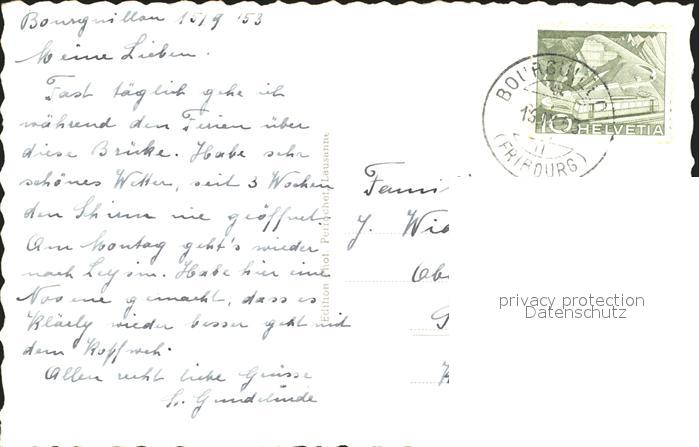 Bourguillon 15/9 '53
Meine Lieben.
Fast täglich gehe ich
während den Ferien über
diese Brücke. Habe sehr
schönes Wetter, seit 3 Wochen
den Schirm nie geöffnet.
Am Montag geht's wieder
nach Leysin. Habe hier eine
Novene gemacht, dass es
Klärly wieder besser geht mit
dem Kopfweh.
Allen recht liebe Grüsse
Gundelinde
Edition Phot. Perrochet, Lausanne
BOURGUILLO
(FRIBOURG)
10 HELVETIA
Famil
J.
privacy protection
Datenschutz